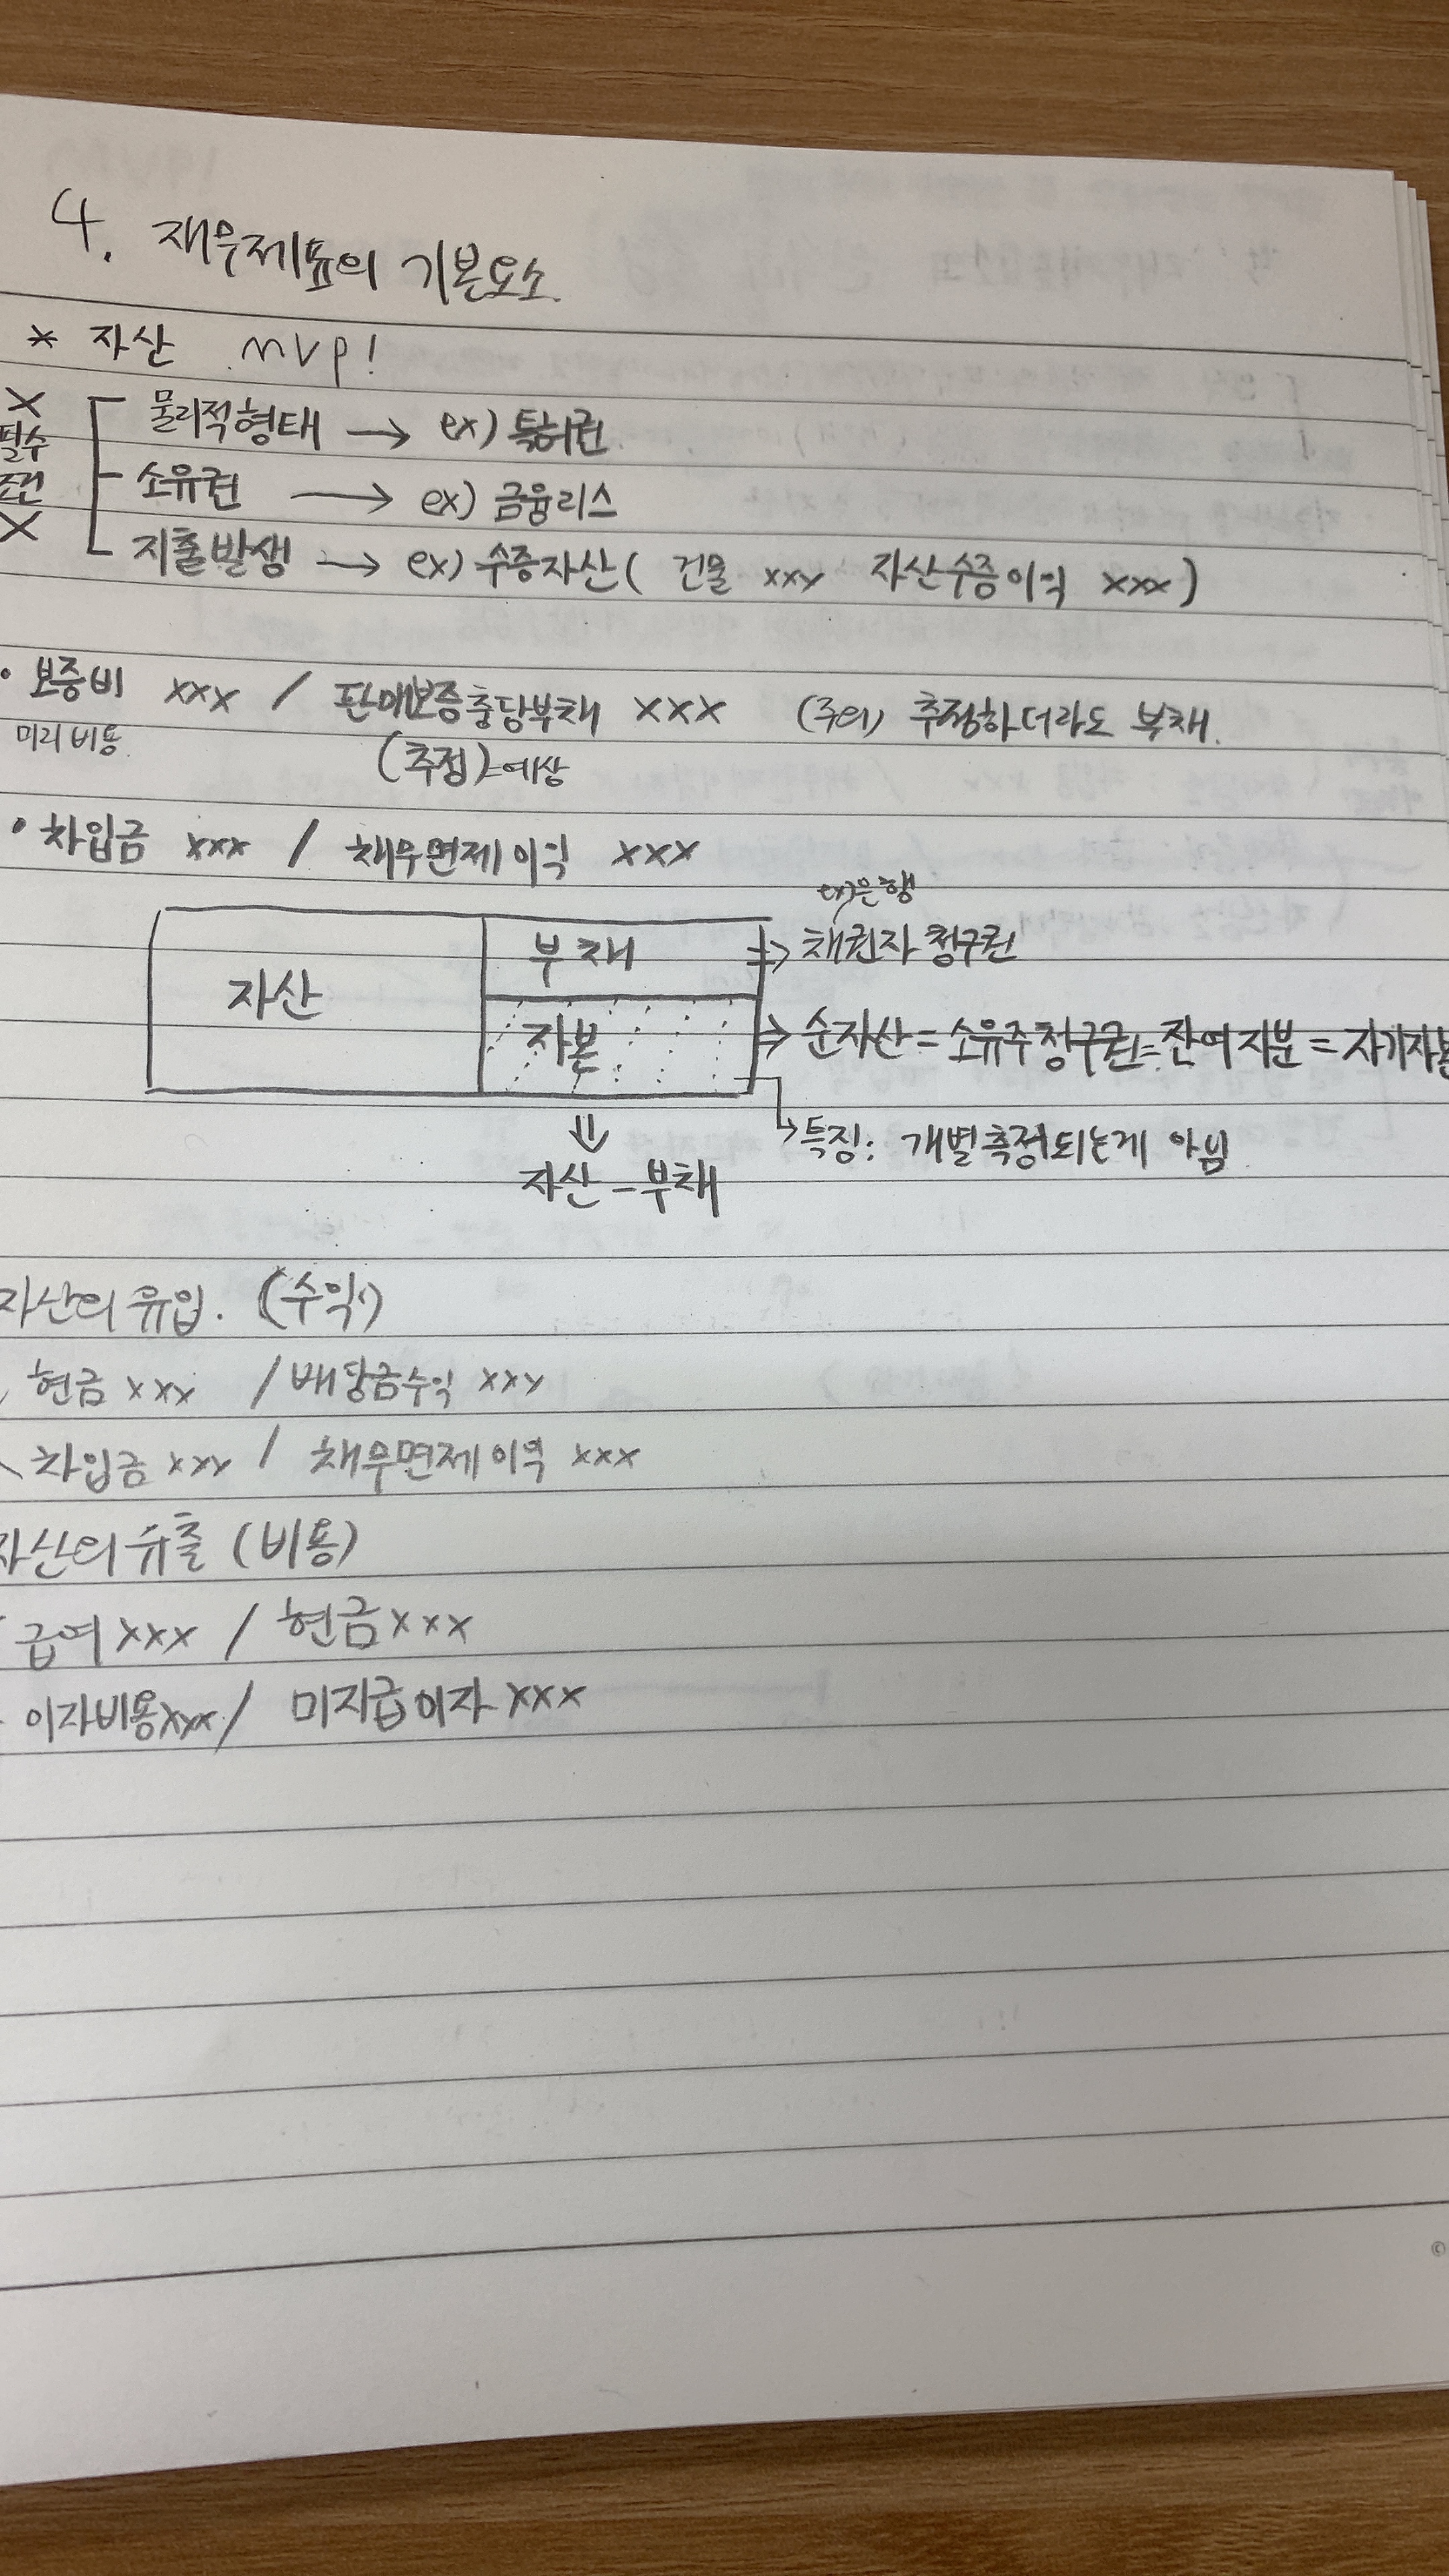 4. 재무제표의 기본요소.
* 자산 mvp!
X 필수 조건 X
물리적형태 → ex) 특허권.
소유권 → ex) 금융리스
지출발생 → ex) 수증자산( 건물 xxx 자산수증이익 xxx )
• 보증비 xxx / 판매보증충당부채 xxx (주의) 추정하더라도 부채.
미리 비용. (추정)=예상
• 차입금 xxx / 채무면제이익 xxx
ex)은행
부채 ⇒ 채권자 청구권
자산
자본 ⇒ 순자산 = 소유주청구권 = 잔여지분 = 자기자본
↳ 특징: 개별측정되는게 아님
⇓
자산 - 부채
자산의 유입. (수익)
현금 xxx / 배당금수익 xxx
차입금 xxx / 채무면제이익 xxx
자산의 유출 (비용)
급여 xxx / 현금 xxx
이자비용 xxx / 미지급이자 xxx
©